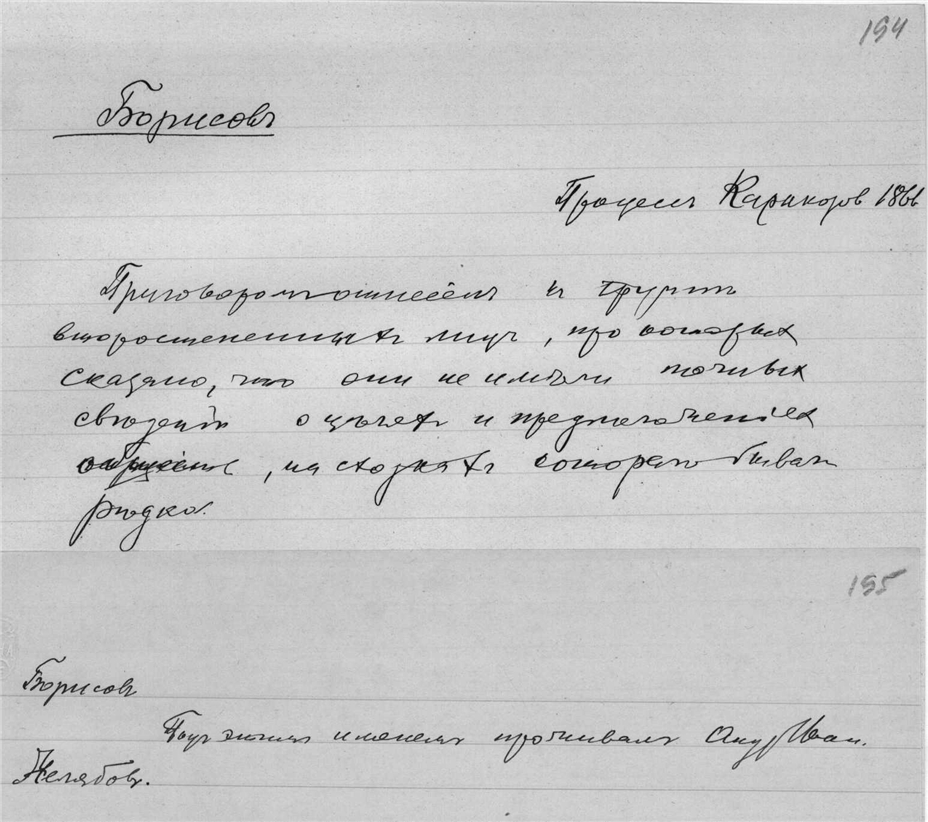 194
Борисовъ
Процессъ Каракозов 1866
Приговоромъ отнесёнъ к группѣ
второстепенныхъ лицъ, про которых
сказано, что они не имѣли точных
свѣдѣній о цѣляхъ и предположеніях
общества, на сходкахъ котораго бывали
рѣдко.
195
Борисовъ
Подъ этимъ именемъ проживалъ Анд. Иван.
Желябовъ.